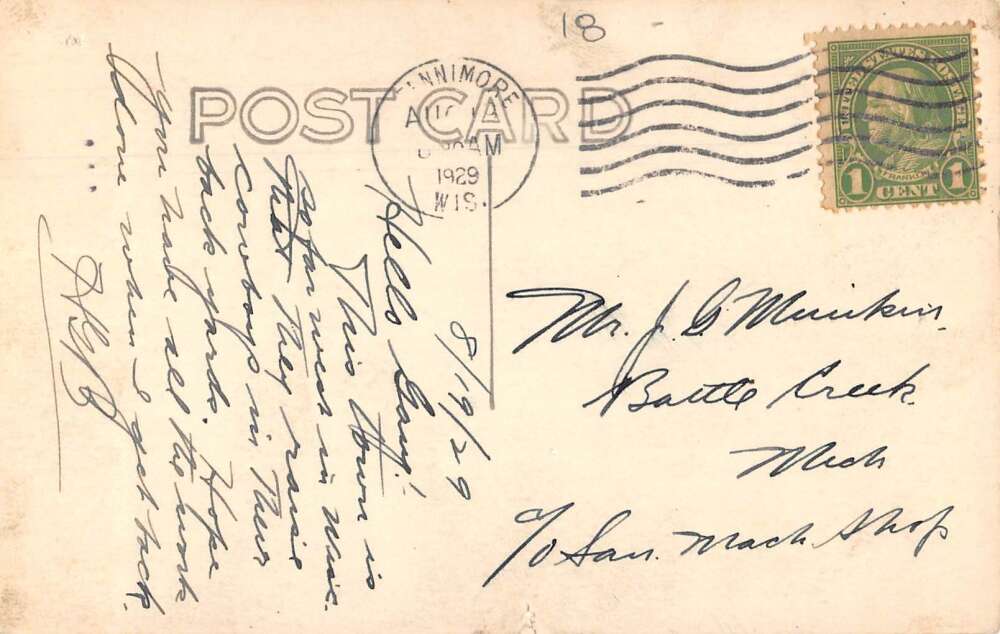 18
POST CARD
FENNIMORE
AUG
AM
1929
WIS.
UNITED STATES POSTAGE
FRANKLIN
1 CENT 1
8/19/29
Hello Gang!
This town is
so far west in Wisc.
that they raise
cowboys in their
back yards. Hope
you have all the work
done when I get back.
...
Mr. J. G.
Battle Creek
Mich
c/o San. Mach Shop